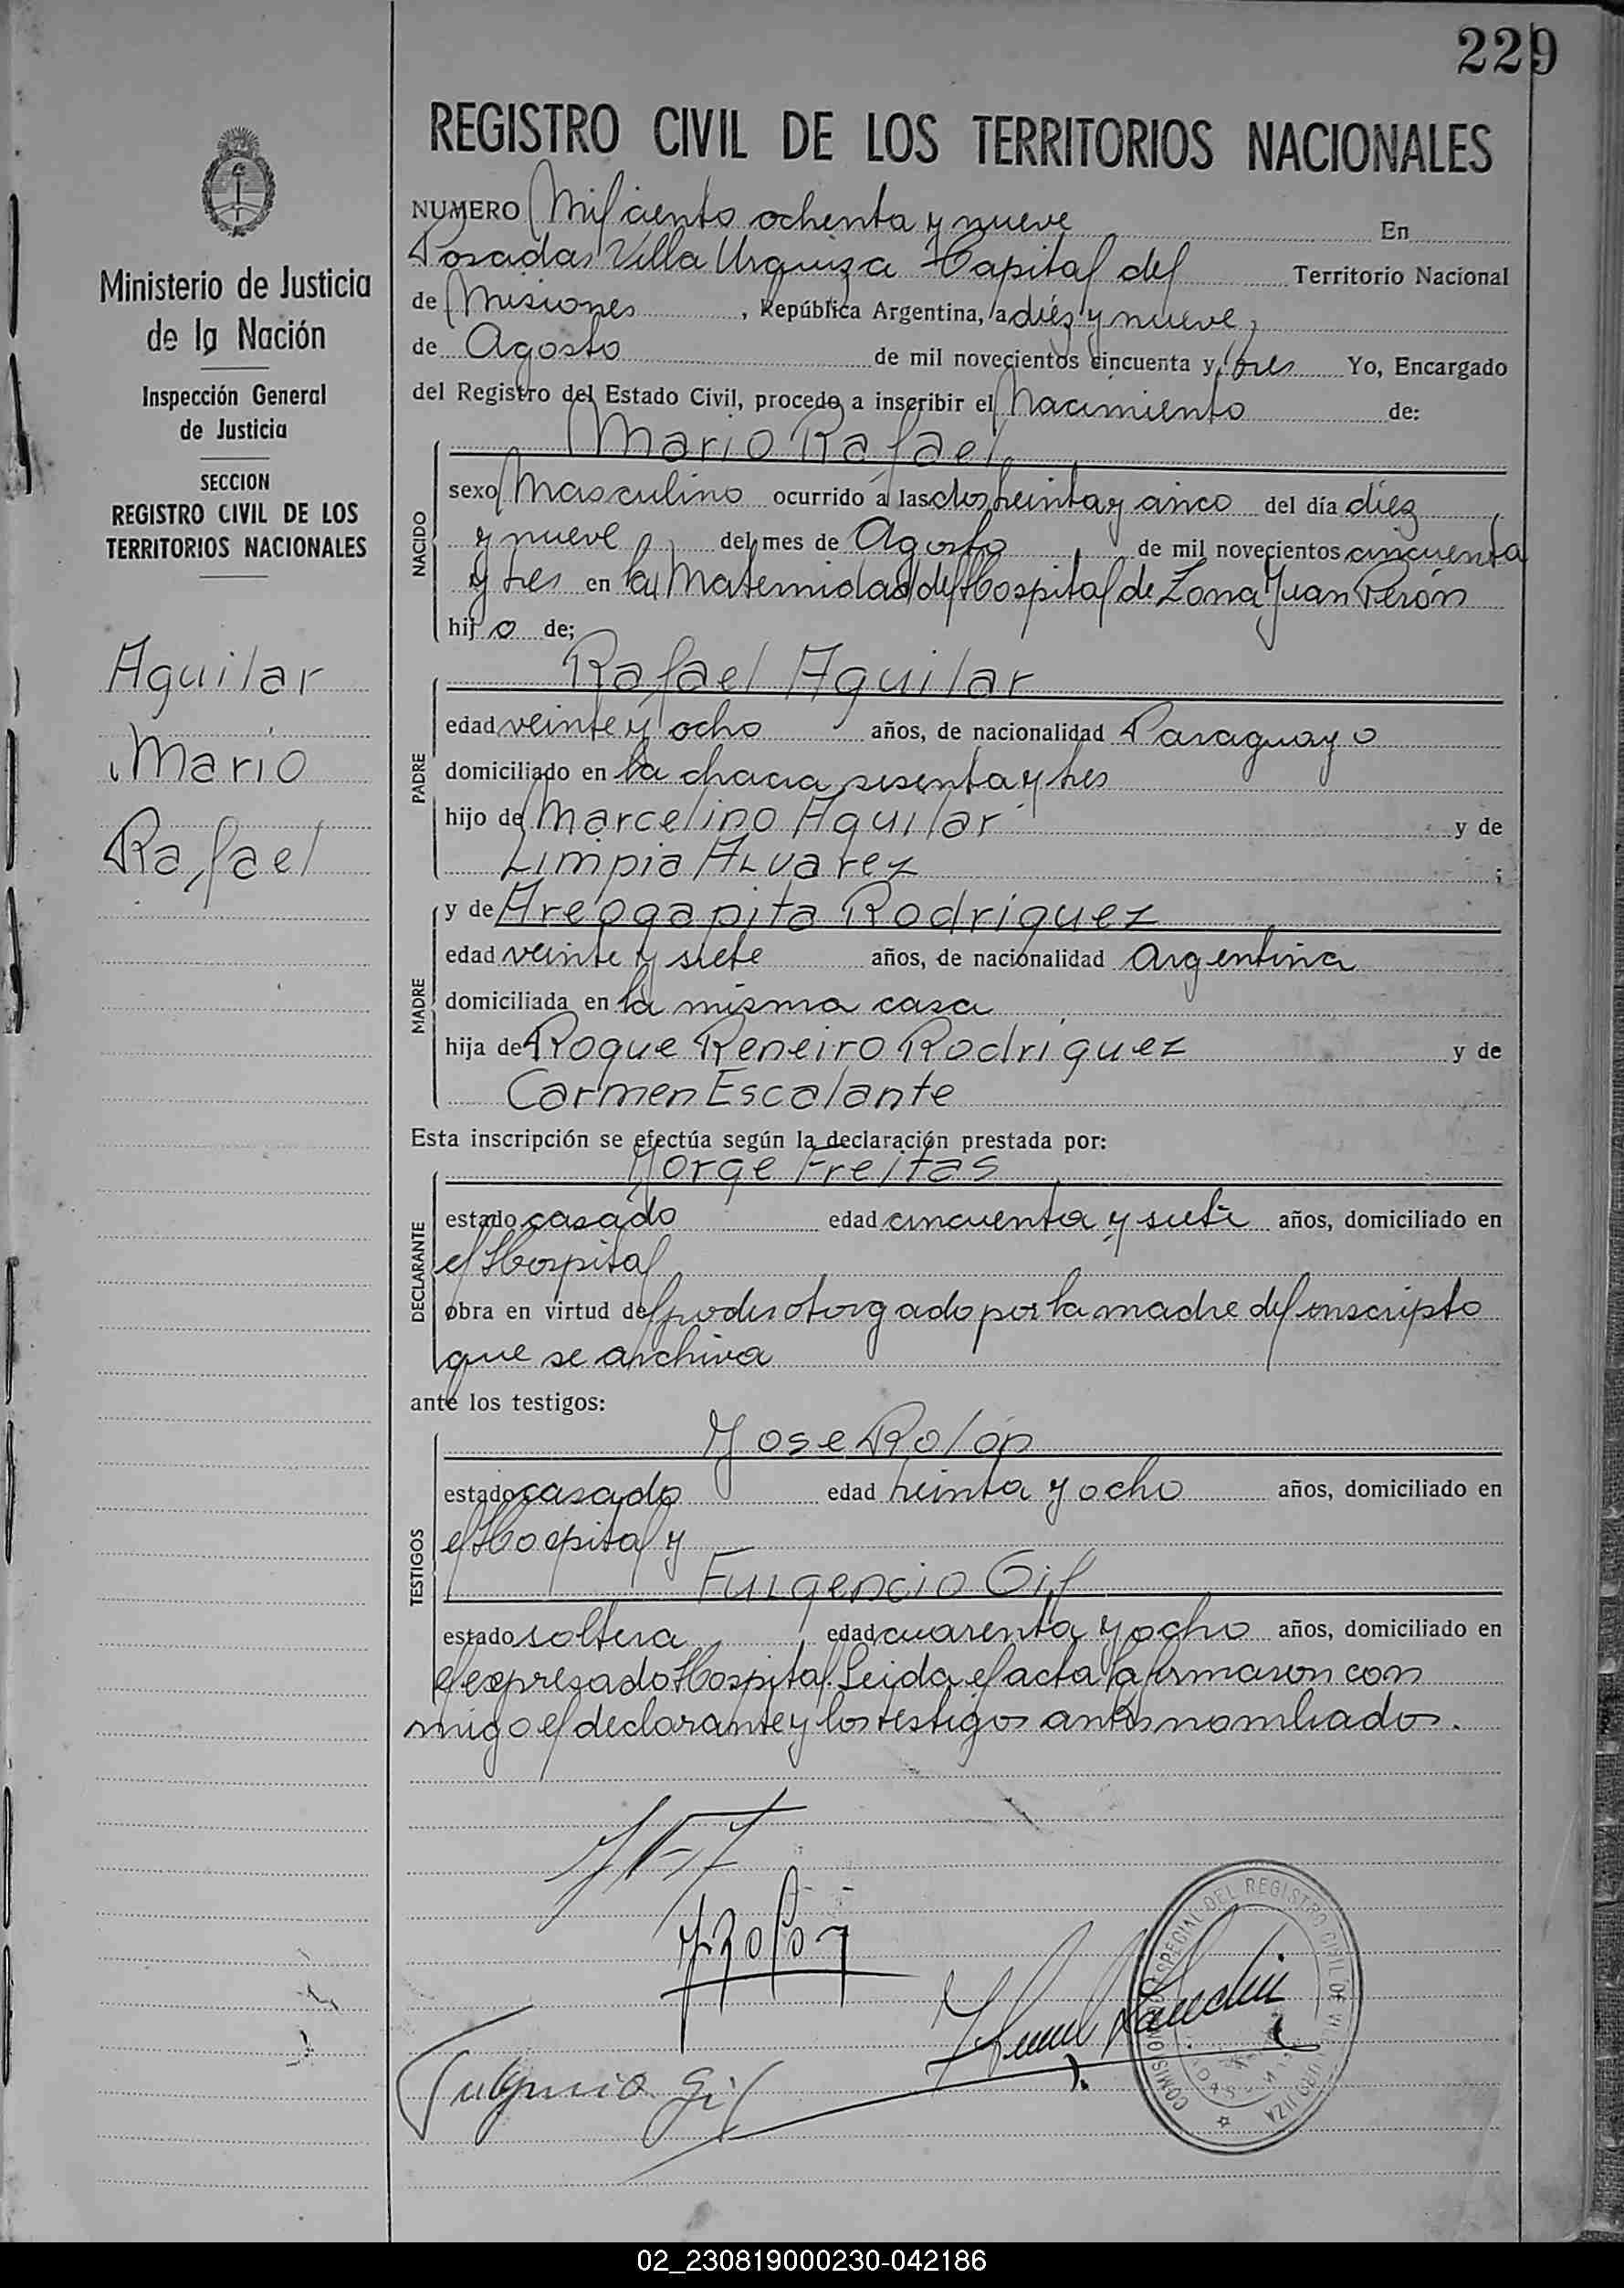 229
REGISTRO CIVIL DE LOS TERRITORIOS NACIONALES
Ministerio de Justicia
de la Nación
Inspección General
de Justicia
SECCION
REGISTRO CIVIL DE LOS
TERRITORIOS NACIONALES
Aguilar
Mario
Rafael
NUMERO Mil ciento ochenta y nueve En
Posadas Villa Urquiza Capital del Territorio Nacional
de Misiones, República Argentina, a diéz y nueve,
de Agosto de mil novecientos cincuenta y tres Yo, Encargado
del Registro del Estado Civil, procedo a inscribir el Nacimiento de:
NACIDO
Mario Rafael
sexo Masculino ocurrido á las dos treinta y cinco del día diez
y nueve del mes de Agosto de mil novecientos cincuenta
y tres en la Maternidad del Hospital de Zona Juan Perón
hijo de;
PADRE
Rafael Aguilar
edad veinte y ocho años, de nacionalidad Paraguayo
domiciliado en la chacra sesenta y tres
hijo de Marcelino Aguilar y de
Limpia Alvarez ;
MADRE
y de Areogapita Rodriguez
edad veinte y siete años, de nacionalidad Argentina
domiciliada en la misma casa
hija de Roque Reneiro Rodriguez y de
Carmen Escalante
Esta inscripción se efectúa según la declaración prestada por:
DECLARANTE
Jorge Freitas
estado casado edad cincuenta y siete años, domiciliado en
el Hospital
obra en virtud del poder otorgado por la madre del inscripto
que se archiva
ante los testigos:
TESTIGOS
Jose Rolón
estado casado edad treinta y ocho años, domiciliado en
el Hospital y
Fulgencio Gil
estado soltera edad cuarenta y ocho años, domiciliado en
el expresado Hospital. Leida el acta la firmaron con
migo el declarante y los testigos antes nombrados.
Fulgencio Gil
COMISION ESPECIAL DEL REGISTRO CIVIL DE VILLA URQUIZA
02_230819000230-042186